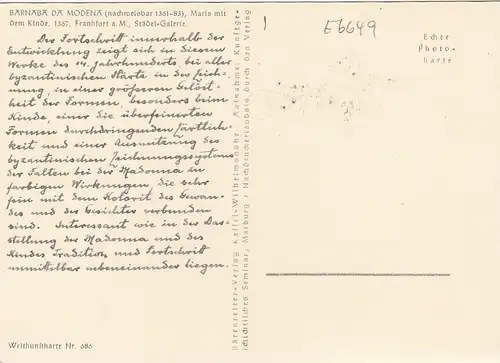 BARNABA DA MODENA (nachweisbar 1361-83), Maria mit
dem Kinde. 1367. Frankfurt a. M., Städel-Galerie.
Der Fortschritt innerhalb der
Entwicklung zeigt sich in diesem
Werke des 14. Jahrhunderts, bei aller
byzantinischen Härte in der Zeich-
nung, in einer größeren Gelöst-
heit der Formen, besonders beim
Kinde, einer die überfeinerten
Formen durchdringenden Zärtlich-
keit und einer Ausnutzung des
byzantinischen Zeichnungssystems
der Falten bei der Madonna zu
farbigen Wirkungen, die sehr
fein mit dem Kolorit des Gewan-
des und der Gesichter verbunden
sind. Interessant wie in der Dar-
stellung der Madonna und des
Kindes Tradition und Fortschritt
unmittelbar nebeneinander liegen.
Weltkunstkarte Nr. 686
Bärenreiter-Verlag Kassel-Wilhelmshöhe / Aufnahme: Kunstge-
schichtliches Seminar, Marburg / Nachdruckerlaubnis durch den Verlag
E6649
Echte
Photo-
karte